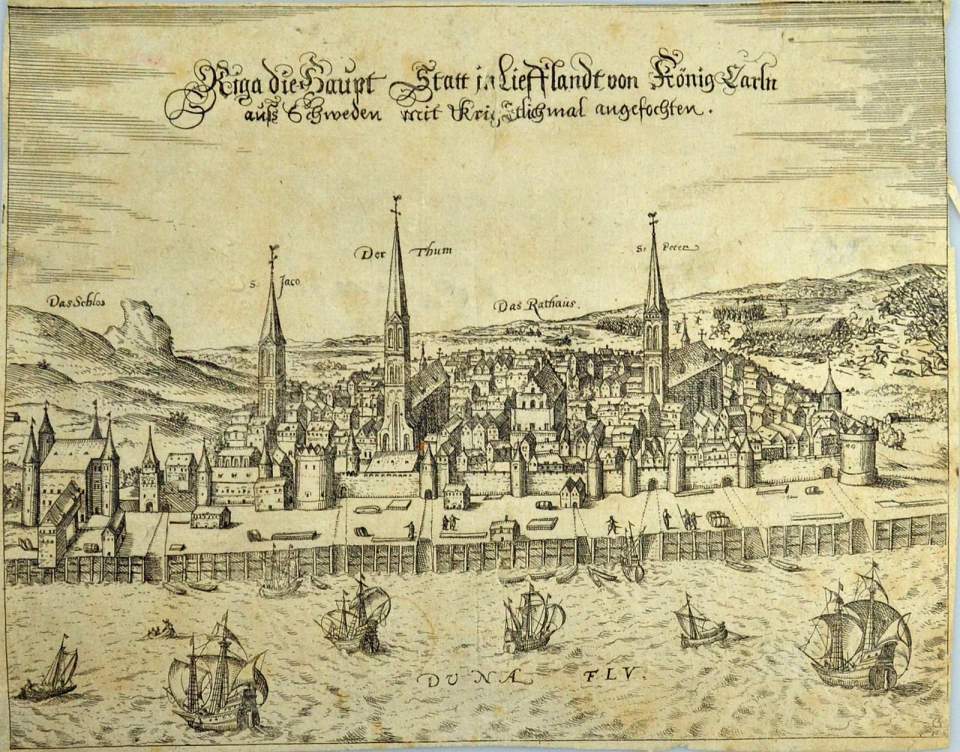 Riga die Haupt Statt in Liefflandt von König Carln
auß Schweden mit angefochten.
Der Thum
St Peter
S. Jaco
Das Schlos
Das Rathaus.
DUNA FLV.